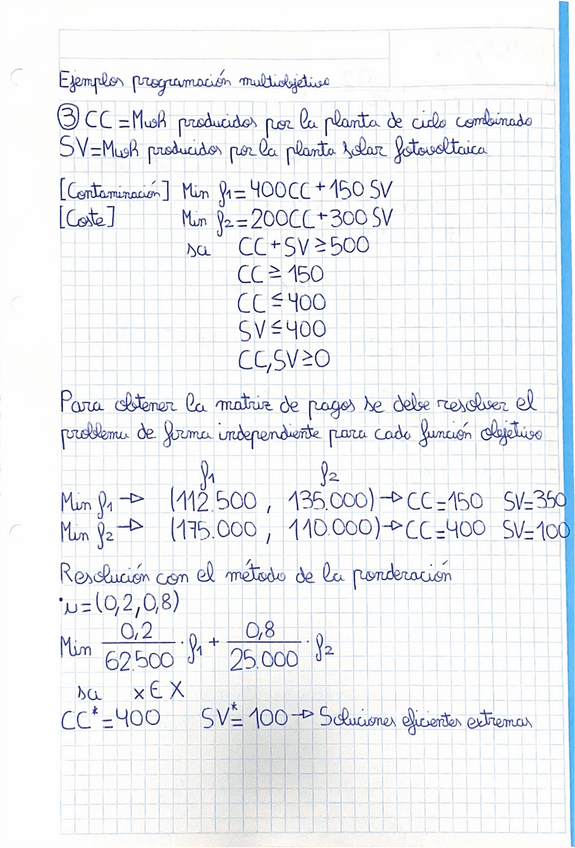 Ejemplos programación multiobjetivo
③ CC = Mwh producidos por la planta de ciclo combinado
SV = Mwh producidos por la planta solar fotovoltaica
[Contaminación] Min f1 = 400CC + 150 SV
[Coste] Min f2 = 200CC + 300 SV
sa CC + SV ≥ 500
CC ≥ 150
CC ≤ 400
SV ≤ 400
CC, SV ≥ 0
Para obtener la matriz de pagos se debe resolver el
problema de forma independiente para cada función objetivo
f1 f2
Min f1 → (112.500 , 135.000) → CC = 150 SV = 350
Min f2 → (175.000 , 110.000) → CC = 400 SV = 100
Resolución con el método de la ponderación
·w = (0,2, 0,8)
Min 0,2/62.500 · f1 + 0,8/25.000 · f2
sa x ∈ X
CC* = 400 SV* = 100 → Soluciones eficientes extremas